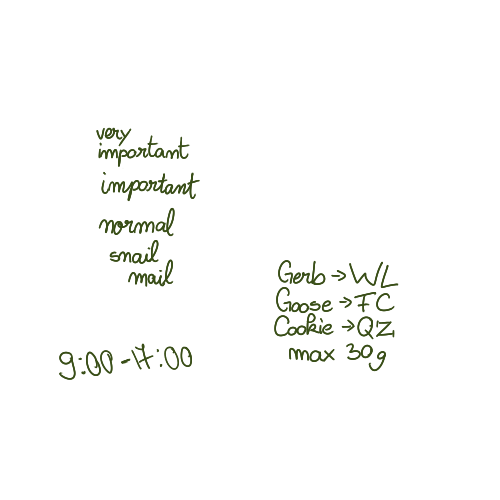 very
important
important
normal
snail
mail
9:00-17:00
Gerb → WL
Goose → FC
Cookie → QZ
max 30g